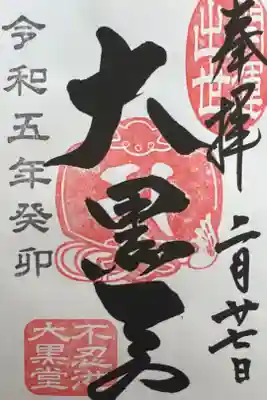 開運
出世
奉拝 二月廿七日
大黒天
令和五年癸卯
不忍池
大黒堂